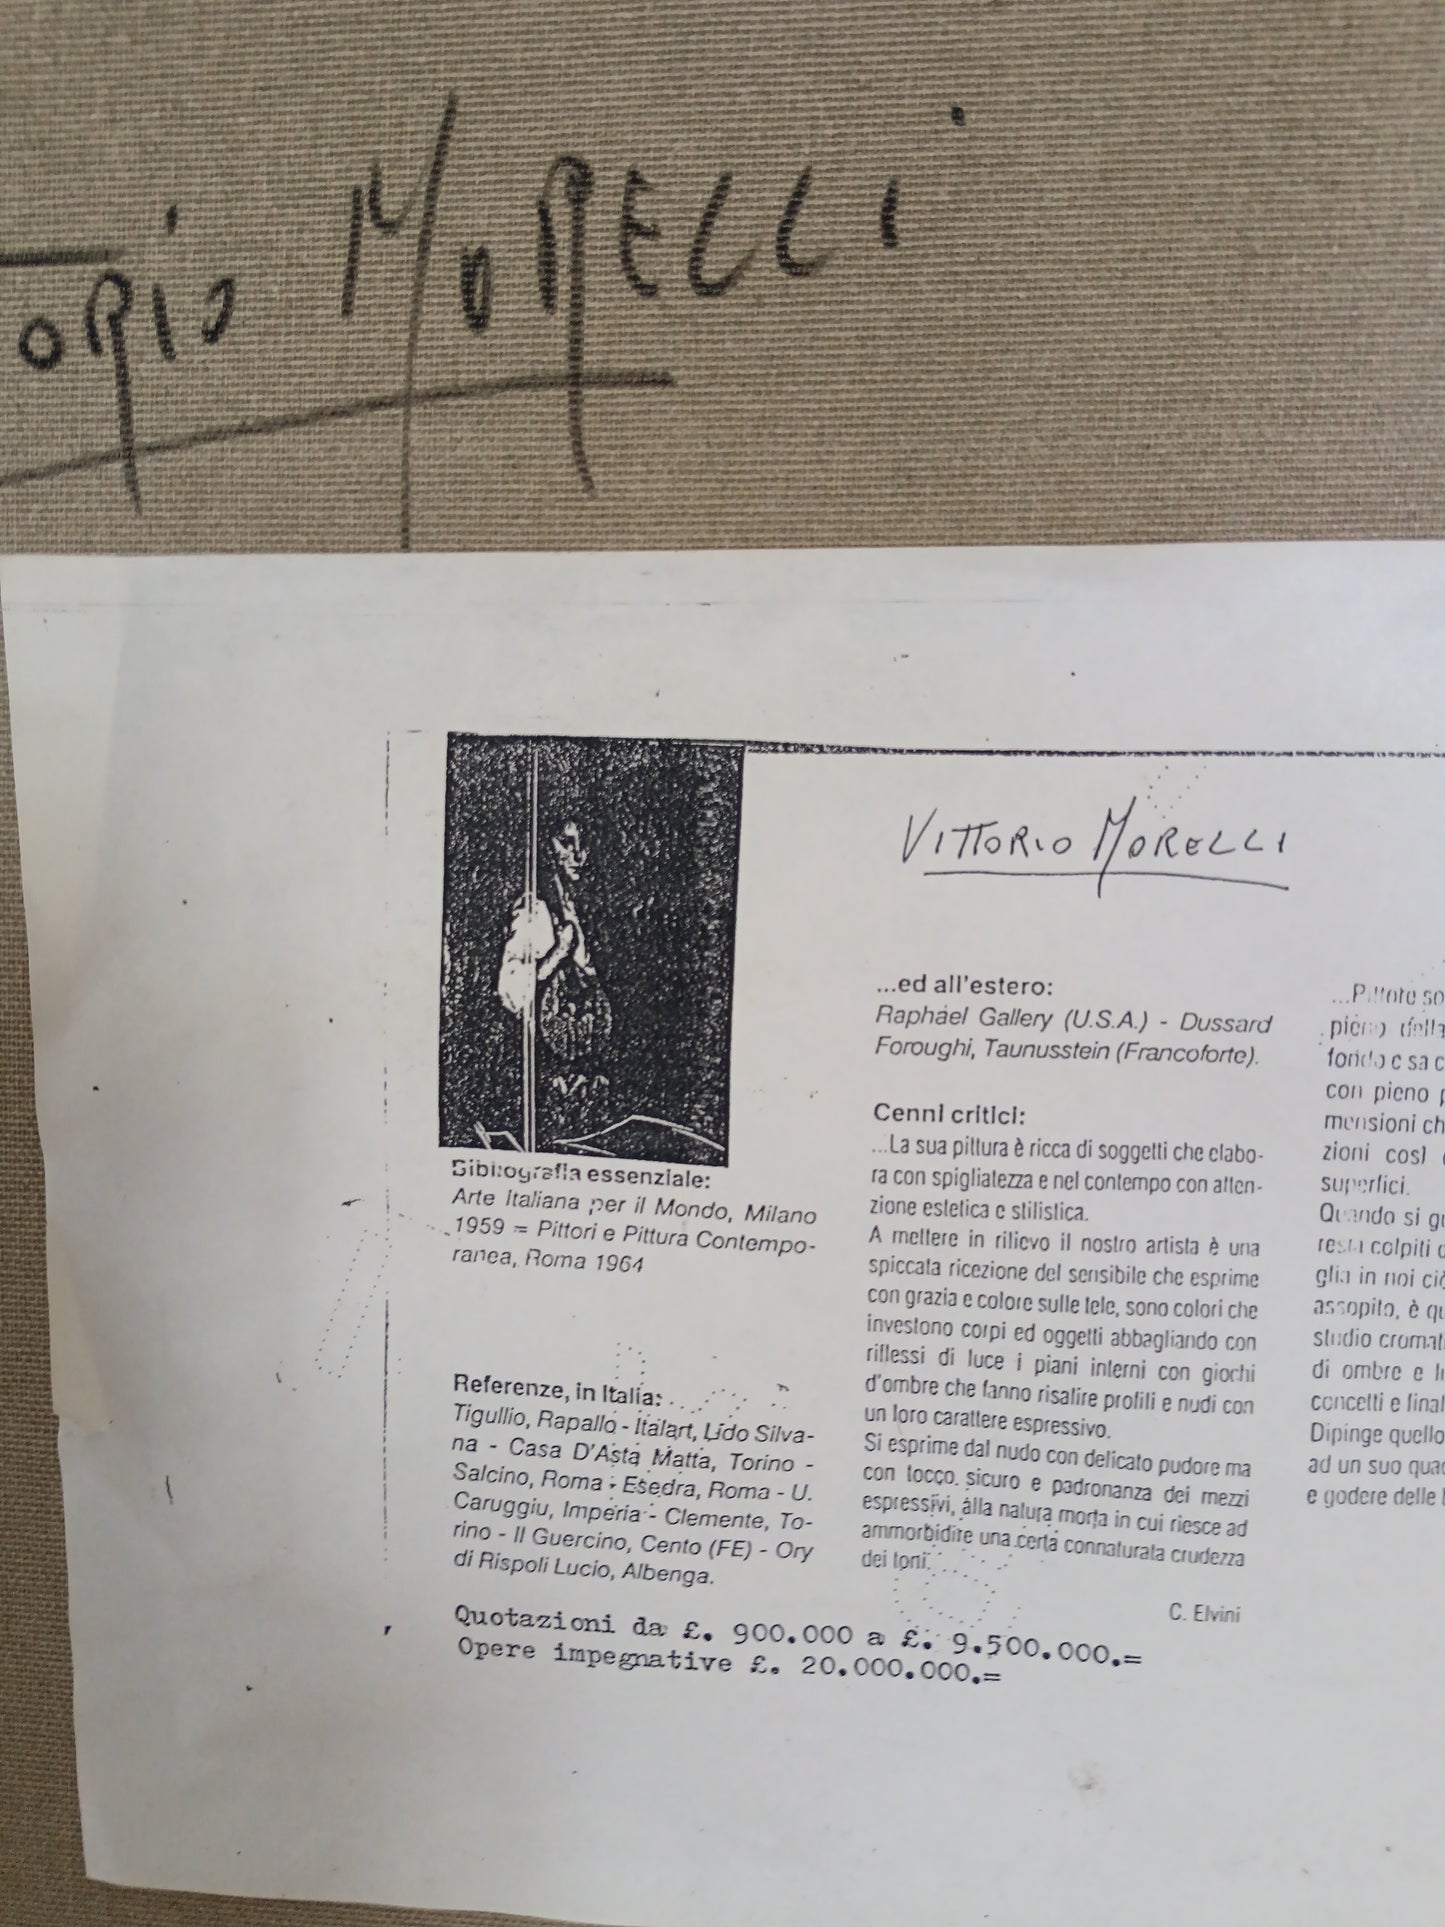 ORIO MORELLI
VITTORIO MORELLI
Bibliografia essenziale:
Arte Italiana per il Mondo, Milano
1959 = Pittori e Pittura Contempo-
ranea, Roma 1964
Referenze, in Italia:
Tigullio, Rapallo - Italart, Lido Silva-
na - Casa D'Asta Matta, Torino -
Salcino, Roma - Esedra, Roma - U.
Caruggiu, Imperia - Clemente, To-
rino - Il Guercino, Cento (FE) - Ory
di Rispoli Lucio, Albenga.
...ed all'estero:
Raphael Gallery (U.S.A.) - Dussard
Foroughi, Taunusstein (Francoforte).
Cenni critici:
...La sua pittura è ricca di soggetti che elabo-
ra con spigliatezza e nel contempo con atten-
zione estetica e stilistica.
A mettere in rilievo il nostro artista è una
spiccata ricezione del sensibile che esprime
con grazia e colore sulle tele, sono colori che
investono corpi ed oggetti abbagliando con
riflessi di luce i piani interni con giochi
d'ombre che fanno risalire profili e nudi con
un loro carattere espressivo.
Si esprime dal nudo con delicato pudore ma
con tocco sicuro e padronanza dei mezzi
espressivi, alla natura morta in cui riesce ad
ammorbidire una certa connaturata crudezza
dei toni.
C. Elvini
...Pittore so
pieno della
fondo e sa c
con pieno p
mensioni ch
zioni così
superfici.
Quando si gu
resta colpiti
glia in noi ciò
assopito, è qu
studio cromat
di ombre e lu
concetti e final
Dipinge quello
ad un suo quad
e godere delle
Quotazioni da £. 900.000 a £. 9.500.000.=
Opere impegnative £. 20.000.000.=